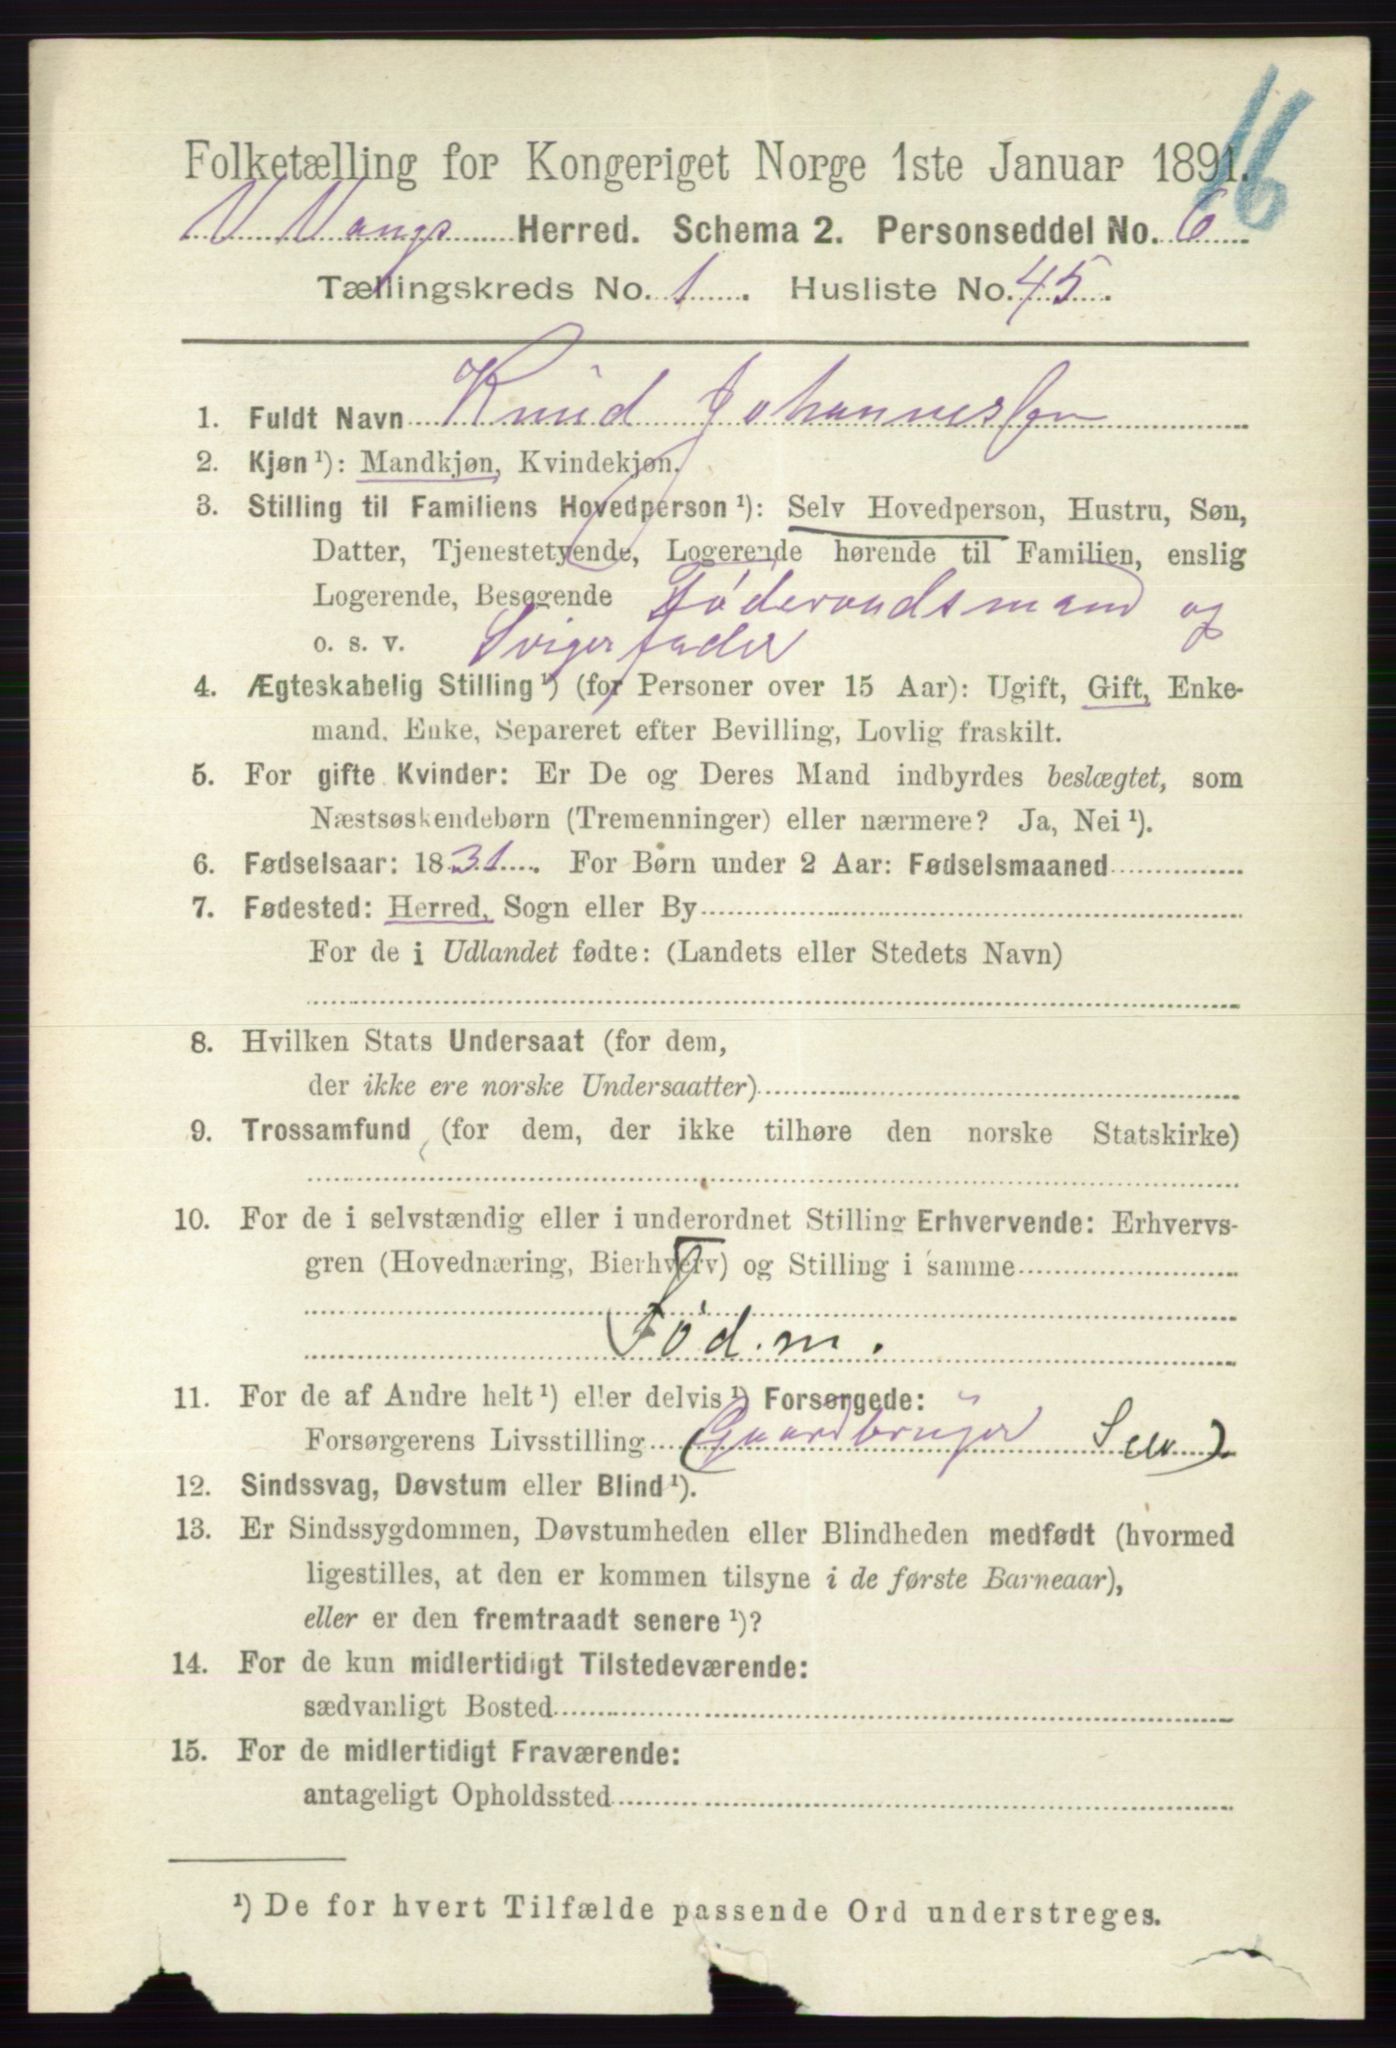 16
Folketælling for Kongeriget Norge 1ste Januar 1891.
V Vangs Herred. Schema 2. Personseddel No. 6
Tællingskreds No. 1. Husliste No. 45.
1. Fuldt Navn Knud Johannesen
2. Kjøn¹): Mandkjøn, Kvindekjøn.
3. Stilling til Familiens Hovedperson¹): Selv Hovedperson, Hustru, Søn,
Datter, Tjenestetyende, Logerende hørende til Familien, enslig
Logerende, Besøgende Føderaadsmand og
o. s. v. Svigerfader
4. Ægteskabelig Stilling¹) (for Personer over 15 Aar): Ugift, Gift, Enke-
mand, Enke, Separeret efter Bevilling, Lovlig fraskilt.
5. For gifte Kvinder: Er De og Deres Mand indbyrdes beslægtet, som
Næstsøskendebørn (Tremenninger) eller nærmere? Ja, Nei¹).
6. Fødselsaar: 1831. For Børn under 2 Aar: Fødselsmaaned
7. Fødested: Herred, Sogn eller By
For de i Udlandet fødte: (Landets eller Stedets Navn)
8. Hvilken Stats Undersaat (for dem,
der ikke ere norske Undersaatter)
9. Trossamfund (for dem, der ikke tilhøre den norske Statskirke)
10. For de i selvstændig eller i underordnet Stilling Erhvervende: Erhvervs-
gren (Hovednæring, Bierhverv) og Stilling i samme
Fød.m.
11. For de af Andre helt¹) eller delvis¹) Forsørgede:
Forsørgerens Livsstilling (Gaardbruger Selv).
12. Sindssvag, Døvstum eller Blind¹).
13. Er Sindssygdommen, Døvstumheden eller Blindheden medfødt (hvormed
ligestilles, at den er kommen tilsyne i de første Barneaar),
eller er den fremtraadt senere¹)?
14. For de kun midlertidigt Tilstedeværende:
sædvanligt Bosted
15. For de midlertidigt Fraværende:
antageligt Opholdssted
¹) De for hvert Tilfælde passende Ord understreges.